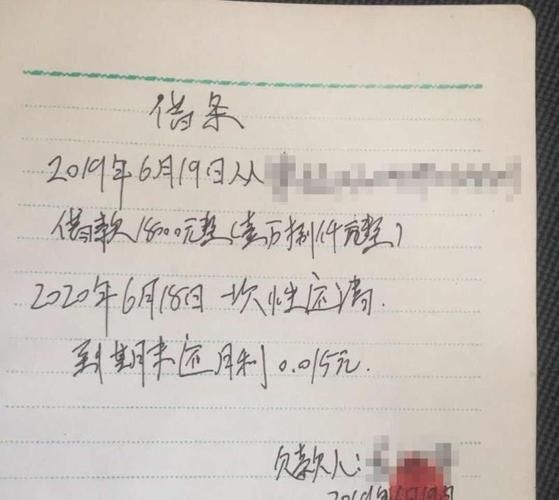 借条
2019年6月19日从
借款18000元整(壹万捌仟元整)
2020年6月18日一次性还清.
到期未还月利0.015元.
欠款人: